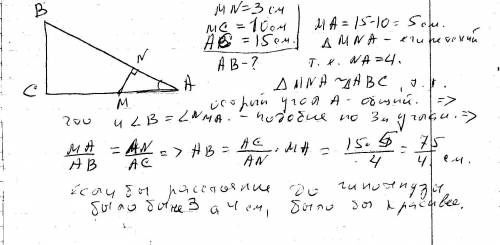 B
MN=3 см
MC=10 см
AC=15 см.
AB-?
MA=15-10=5см.
△MNA - египетский
т.к. NA=4.
N
C
M
A
△MNA ~ △ABC, т.к.
острый угол A - общий. =>
то и ∠B = ∠NMA. - подобие по 3м углам. =>
MA/AB = AN/AC => AB = AC/AN · MA = 15·5/4 = 75/4 см.
если бы расстояние до гипотенузы
было бы не 3 а 4 см, было бы красивее.